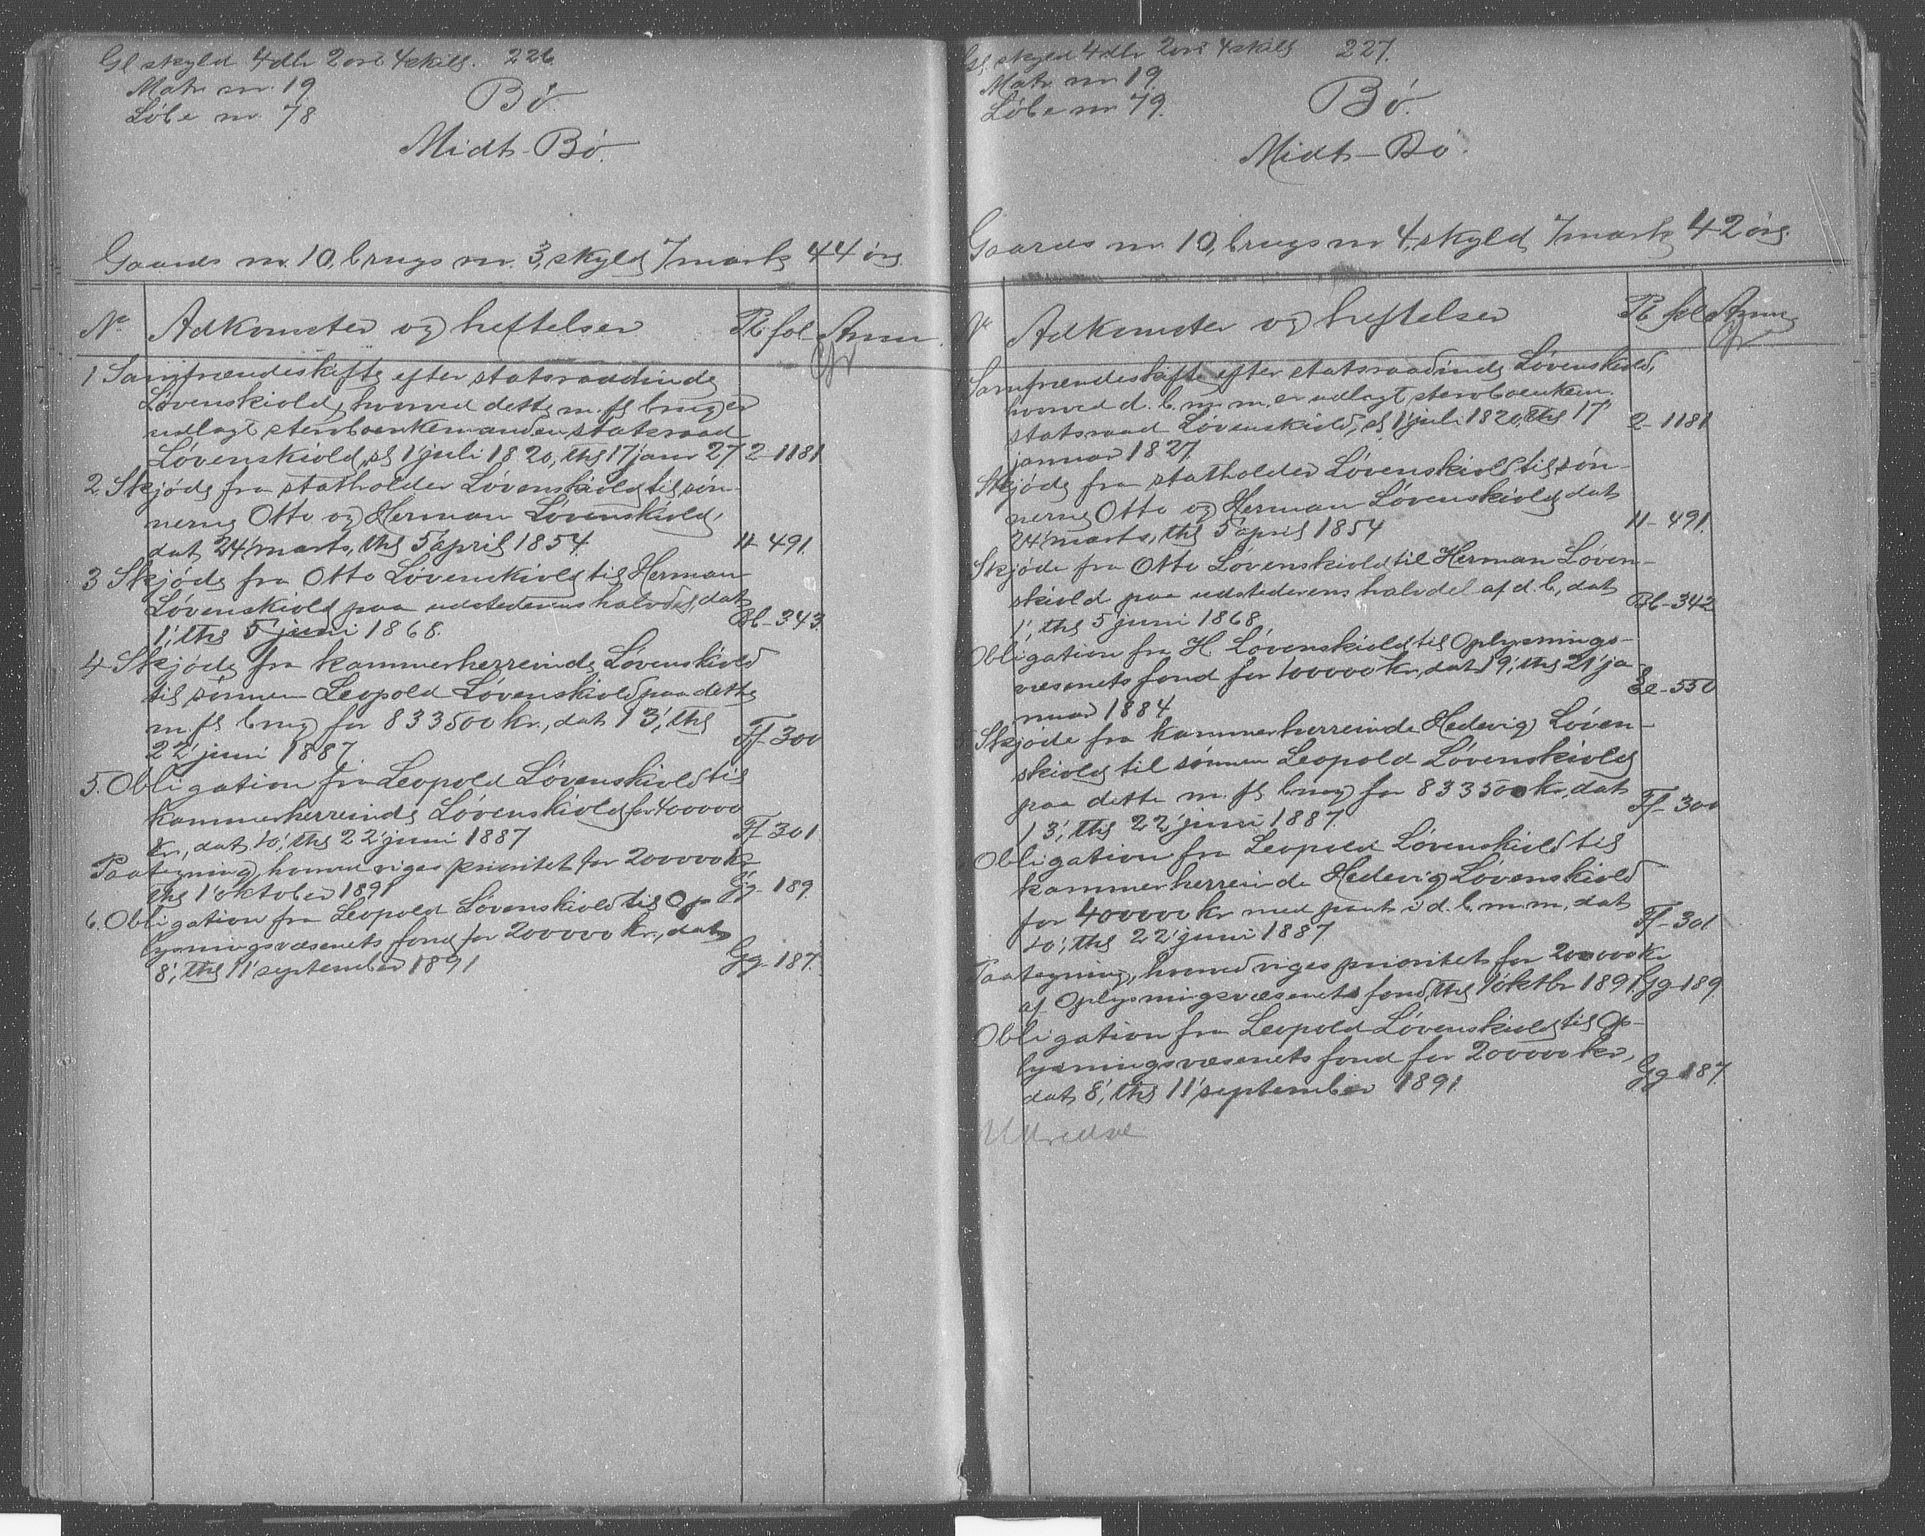 Gl skyld 4 dlr 2 ort 4 skill. 226
Matr nr. 19
Løbe nr. 78
Bø.
Midt-Bø.
Gaards nr. 10, brugs nr. 3, skyld 7 mark 44 øre.
Nr Adkomster og heftelser Pb fol Anm.
1 Samfrændeskifte efter statsraadinde
Løvenskiold, hvorved dette m. fl brug er
udlagt stervboenkemanden statsraad
Løvenskiold, af 1' juli 1820, thl 17' janr 27 2-1181
2 Skjøde fra statholder Løvenskiold til søn-
nerne Otto og Herman Løvenskiold,
dat 24' marts, thl 5' april 1854 11-491
3 Skjøde fra Otto Løvenskiold til Herman
Løvenskiold paa udstederens halvdel, dat
1', thl 5' juni 1868. Bb-343.
4 Skjøde fra kammerherreinde Løvenskiold
til sønnen Leopold Løvenskiold paa dette
m fl brug for 833500 kr., dat 13', thl
22' juni 1887 Ff-300
5. Obligation fra Leopold Løvenskiold til
kammerherreinde Løvenskiold for 400000
kr., dat 10', thl 22' juni 1887 Ff-301
Paategning, hvorved viges prioritet for 200000 kr
thl 1' oktober 1891 Gg-189
6. Obligation fra Leopold Løvenskiold til Op-
lysningsvæsenets fond for 200000 kr., dat
8', thl 11' september 1891 Gg-187.
Gl. skyld 4 dlr 2 ort 4 skill 227.
Matr nr 19.
Løbe nr 79.
Bø.
Midt-Bø.
Gaards nr. 10, brugs nr 4, skyld 7 mark 42 øre.
Nr Adkomster og heftelser Pb fol Anm
Samfrændeskifte efter statsraadinde Løvenskiold,
hvorved d. b. m. m. er udlagt stervboenkem.
statsraad Løvenskiold, af 1' juli 1820, thl 17' 2-1181
januar 1827.
Skjøde fra statholder Løvenskiold til søn-
nerne Otto og Herman Løvenskiold, dat
24' marts, thl 5' april 1854 11-491.
Skjøde fra Otto Løvenskiold til Herman Løven-
skiold paa udstederens halvdel af d. b, dat
1', thl 5' juni 1868. Bb-342
Obligation fra H. Løvenskiold til Oplysnings-
væsenets fond for 100000 kr, dat 19', thl 21' ja
nuar 1884 Ee-550
Skjøde fra kammerherreinde Hedevig Løven-
skiold til sønnen Leopold Løvenskiold
paa dette m. fl brug for 833500 kr, dat
13', thl 22' juni 1887. Ff-300
Obligation fra Leopold Løvenskiold til
kammerherreinde Hedevig Løvenskiold
for 400000 kr med pant i d. b. m. m, dat
10', thl 22' juni 1887 Ff-301
Paategning, hvorved viges prioritet for 200000 kr
af Oplysningsvæsenets fond, thl 1' oktbr 1891. Gg-189.
Obligation fra Leopold Løvenskiold til Op-
lysningsvæsenets fond for 200000 kr,
dat 8', thl 11' september 1891 Gg-187.